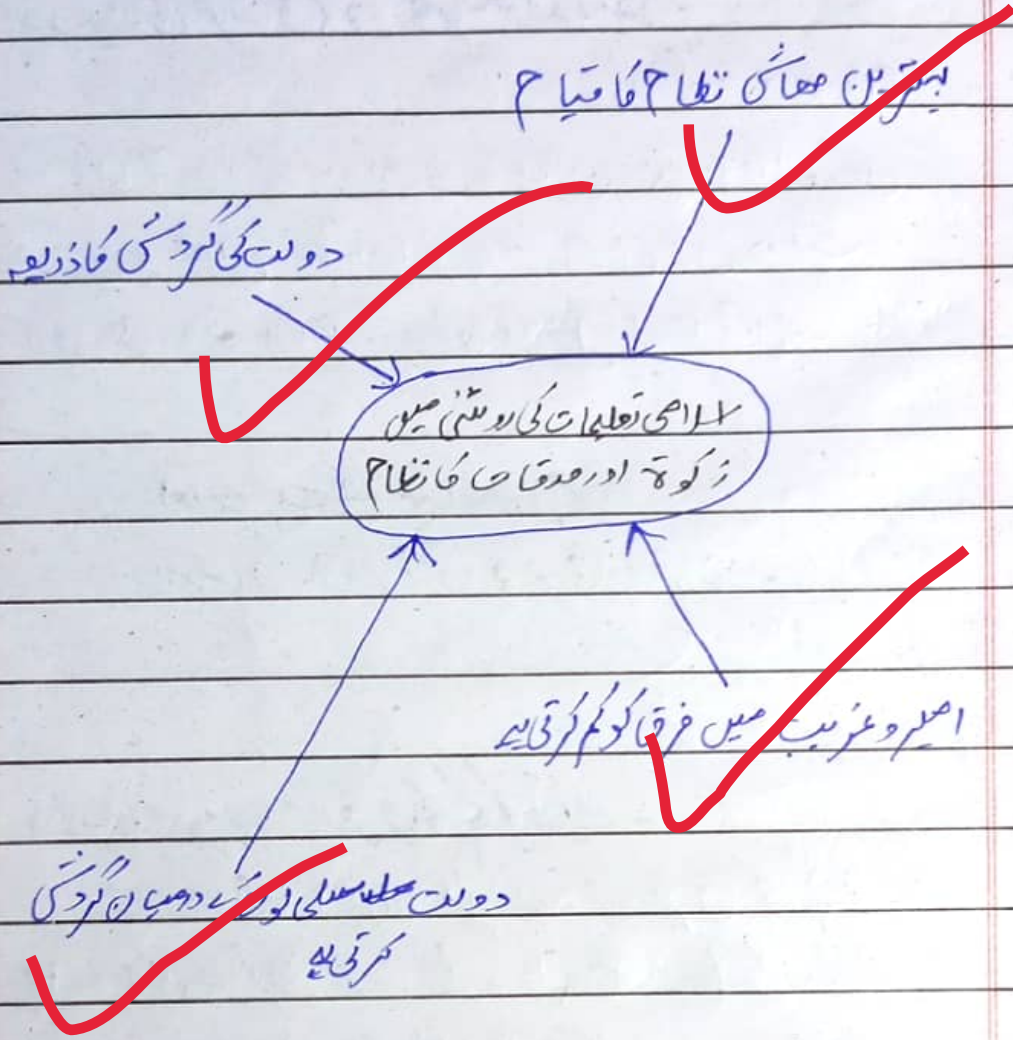 بہترین معاشی نظام کا قیام
دولت کی گردش کا ذریعہ
اسلامی تعلیمات کی روشنی میں
زکوۃ اور صدقات کا نظام
امیر و غریب میں فرق کو کم کرتی ہے
دولت درمیان گردش
کرتی ہے